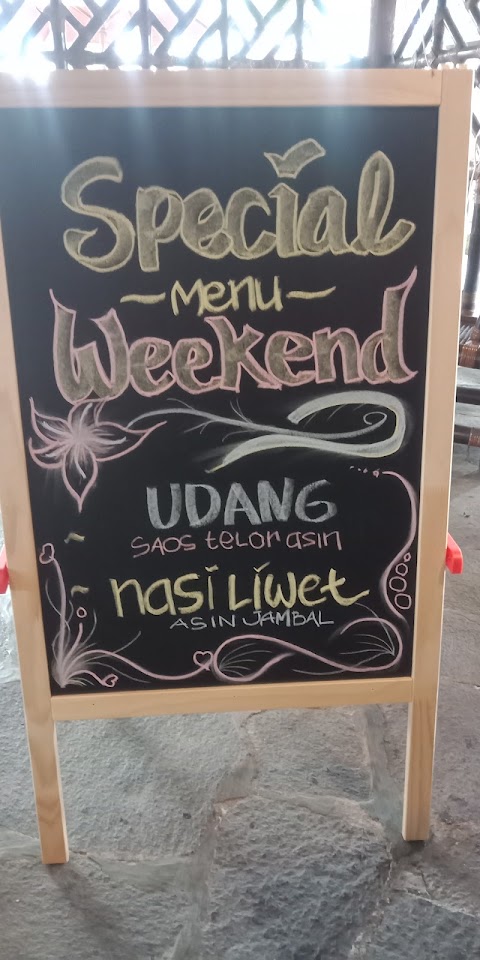 Special
~ Menu ~
Weekend
~ UDANG
SAOS telor asin
~ nasi Liwet
ASIN JAMBAL